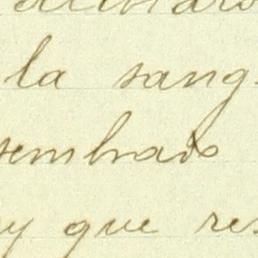 la sang
sembrado
y que res